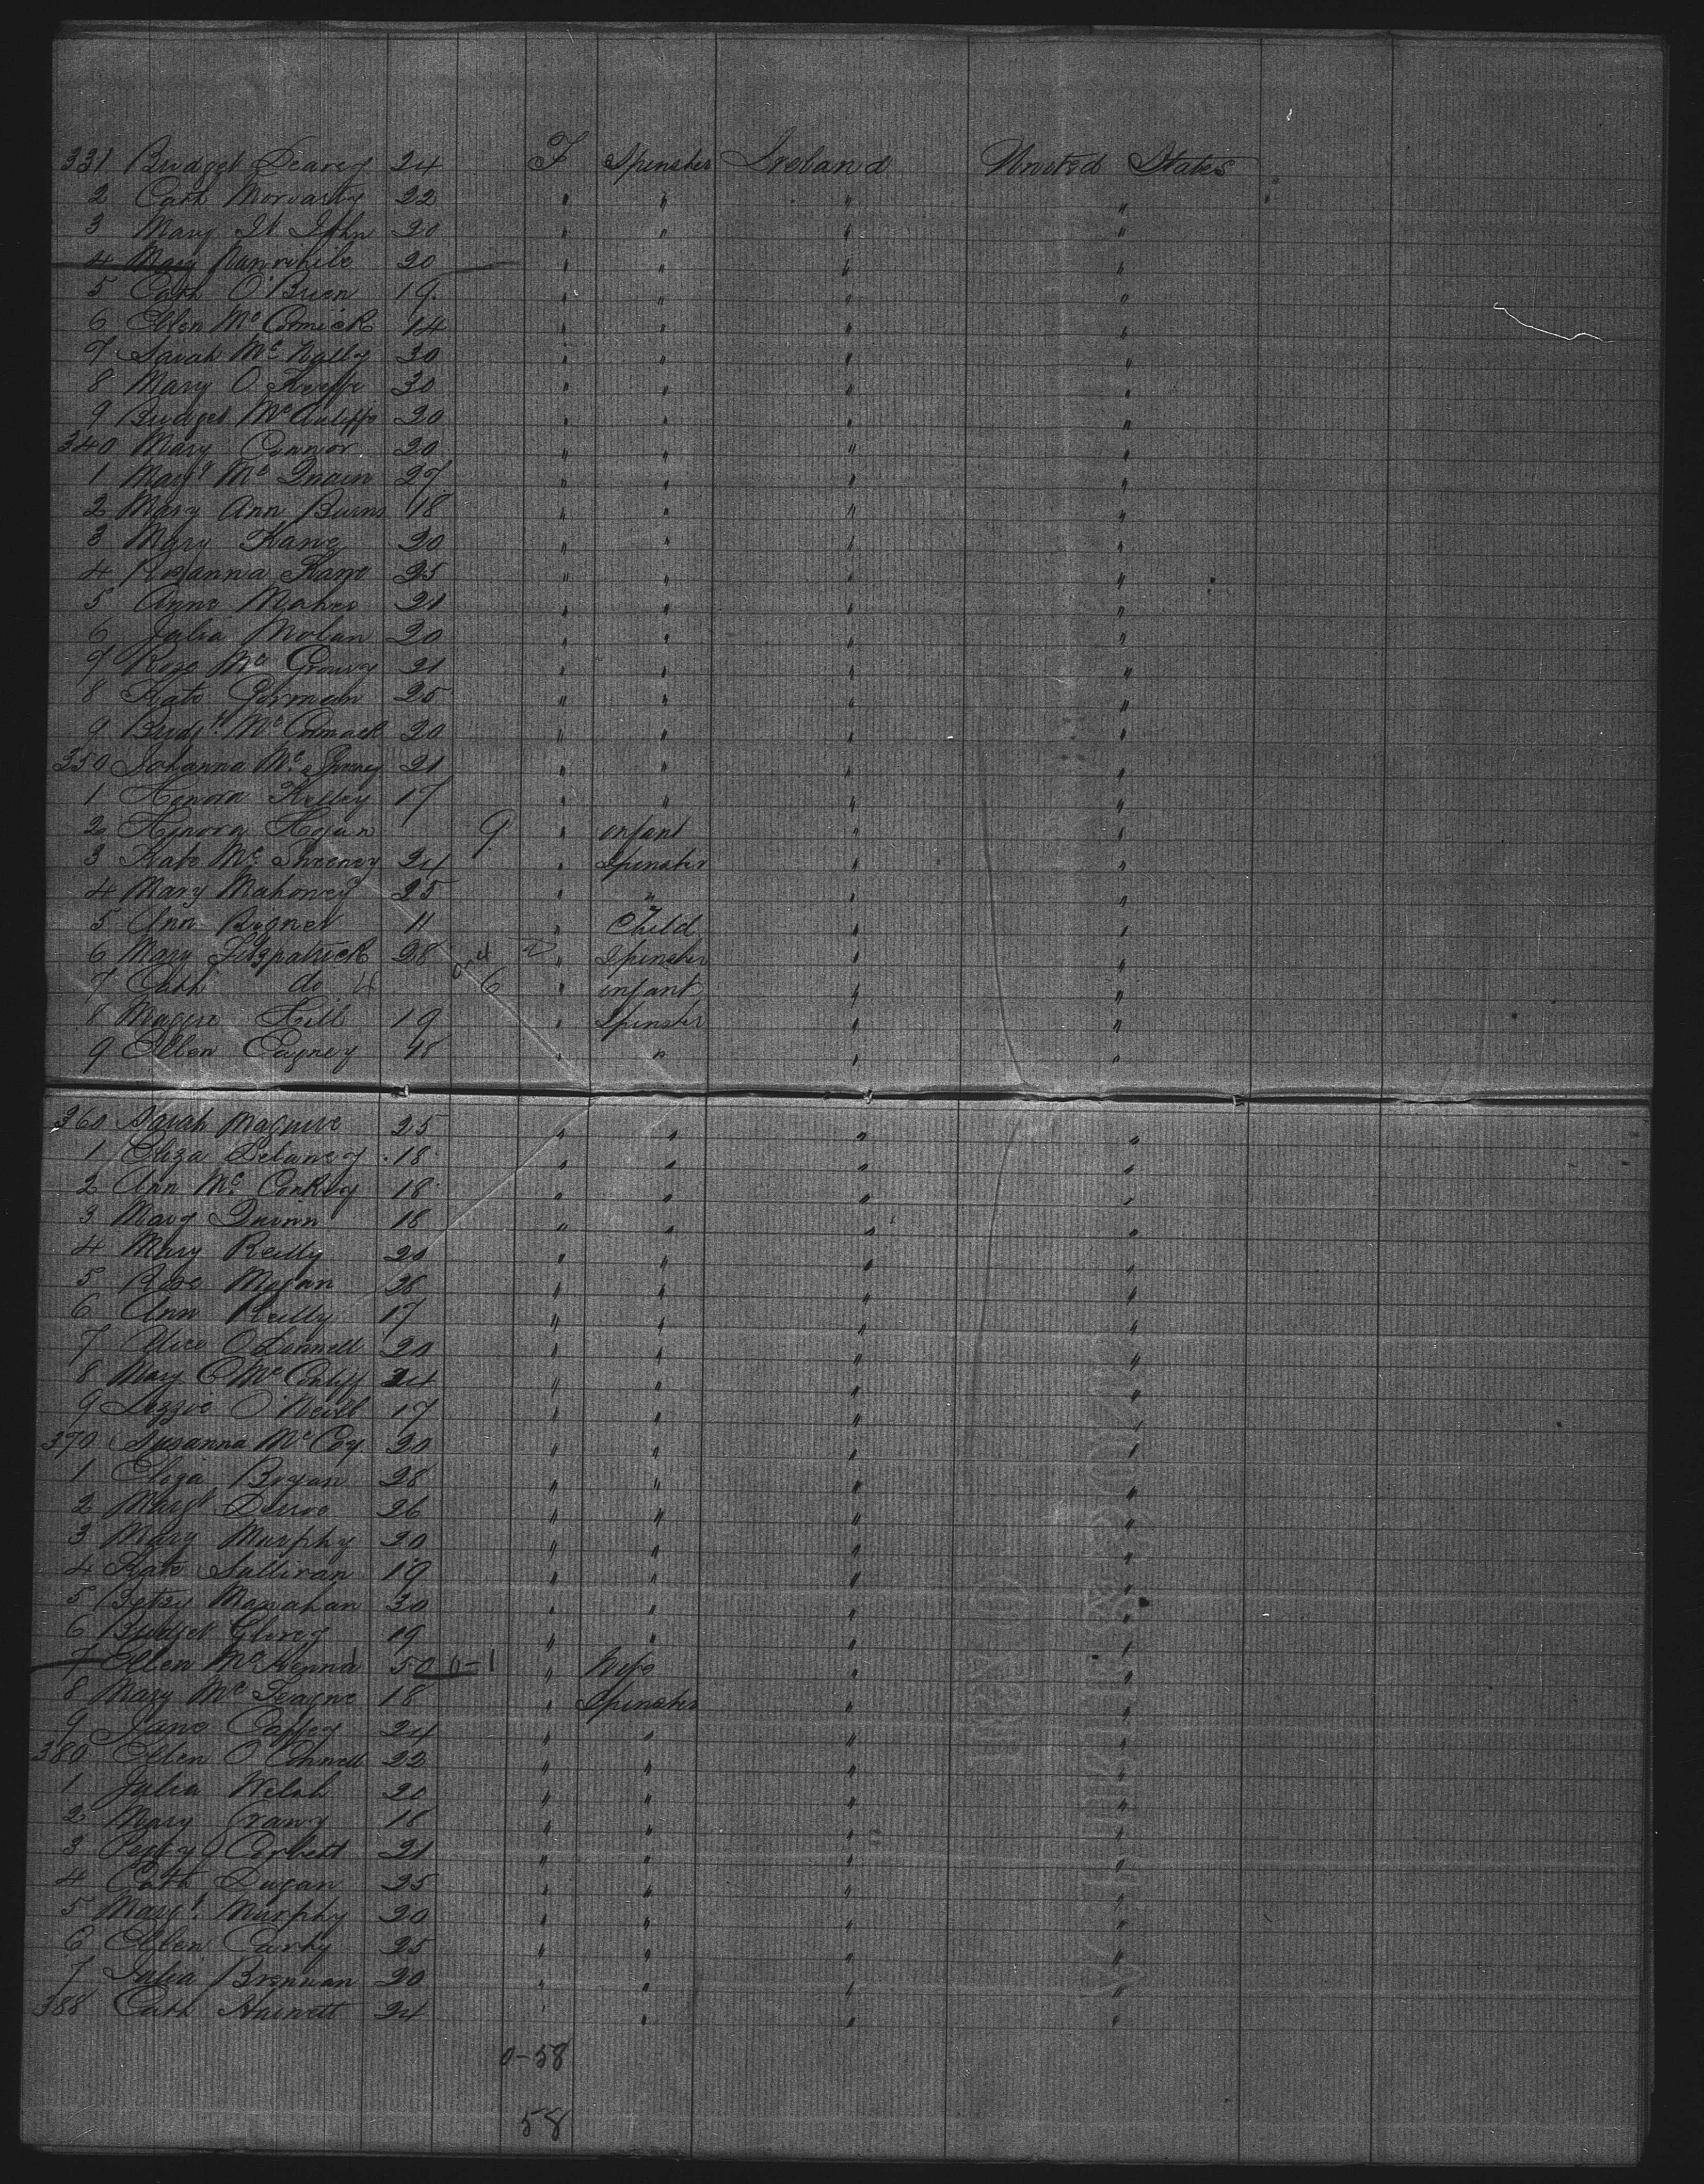 331 Bridget Dearey 24 F Spinster Ireland United States
2 Cath Moriarty 22 " " " "
3 Mary St John 20 " " " "
4 Mary 20 " " " "
5 Cath O'Brien 19 " " " "
6 Ellen McCormick 14 " " " "
7 Sarah McNally 30 " " " "
8 Mary O Keeffe 30 " " " "
9 Bridget McAuliffe 20 " " " "
340 Mary Connor 20 " " " "
1 Margt McQuain 27 " " " "
2 Mary Ann Burns 18 " " " "
3 Mary Kane 20 " " " "
4 Rosanna Kane 25 " " " "
5 Anne Maher 21 " " " "
6 Julia Nolan 20 " " " "
7 Rose Mc 21 " " " "
8 Kate Gorman 25 " " " "
9 Bridgt. McCormack 20 " " " "
350 Johanna Mc 21 " " " "
1 Honora Kelley 17 " " " "
2 Honora Hogan 9 " infant " "
3 Kate McSweeney 24 " Spinster " "
4 Mary Mahoney 25 " " " "
5 Ann 11 " Child " "
6 Mary Fitzpatrick 28 " Spinster " "
7 Cath do 6 " infant " "
8 Maggie Hill 19 " Spinster " "
9 Ellen Cagney 48 " " " "
360 Sarah Maguire 25 " " " "
1 Eliza Delaney 18 " " " "
2 Ann McConkey 18 " " " "
3 Mary Quinn 18 " " " "
4 Mary Reilly 20 " " " "
5 Rose Magan 28 " " " "
6 Ann Reilly 17 " " " "
7 Alice O Donnell 20 " " " "
8 Mary C Mc 24 " " " "
9 Lizzie O'Neill 17 " " " "
370 Susanna McCoy 20 " " " "
1 Eliza Bryan 28 " " " "
2 Margt 26 " " " "
3 Mary Murphy 20 " " " "
4 Kate Sullivan 19 " " " "
5 Betsy Monahan 30 " " " "
6 Bridget Glorey 19 " " " "
7 Ellen McKenna 50 0-1 " Wife " "
8 Mary McTeague 18 " Spinster " "
9 Jane Caffey 24 " " " "
380 Ellen O Connell 22 " " " "
1 Julia Welsh 20 " " " "
2 Mary Crany 18 " " " "
3 Peggy Corbett 21 " " " "
4 Cath Dugan 25 " " " "
5 Margt. Murphy 20 " " " "
6 Ellen Carty 25 " " " "
7 Julia Brennan 20 " " " "
388 Cath Harnett 24 " " " "
0-58
58